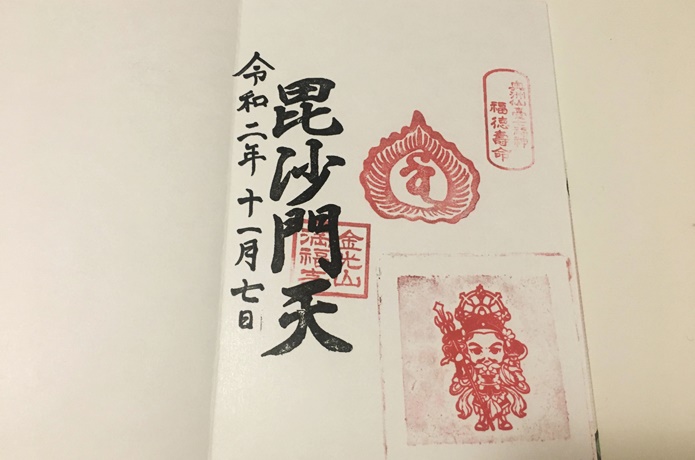 福徳寿命
毘沙門天
金光山
満福寺
令和二年十一月七日